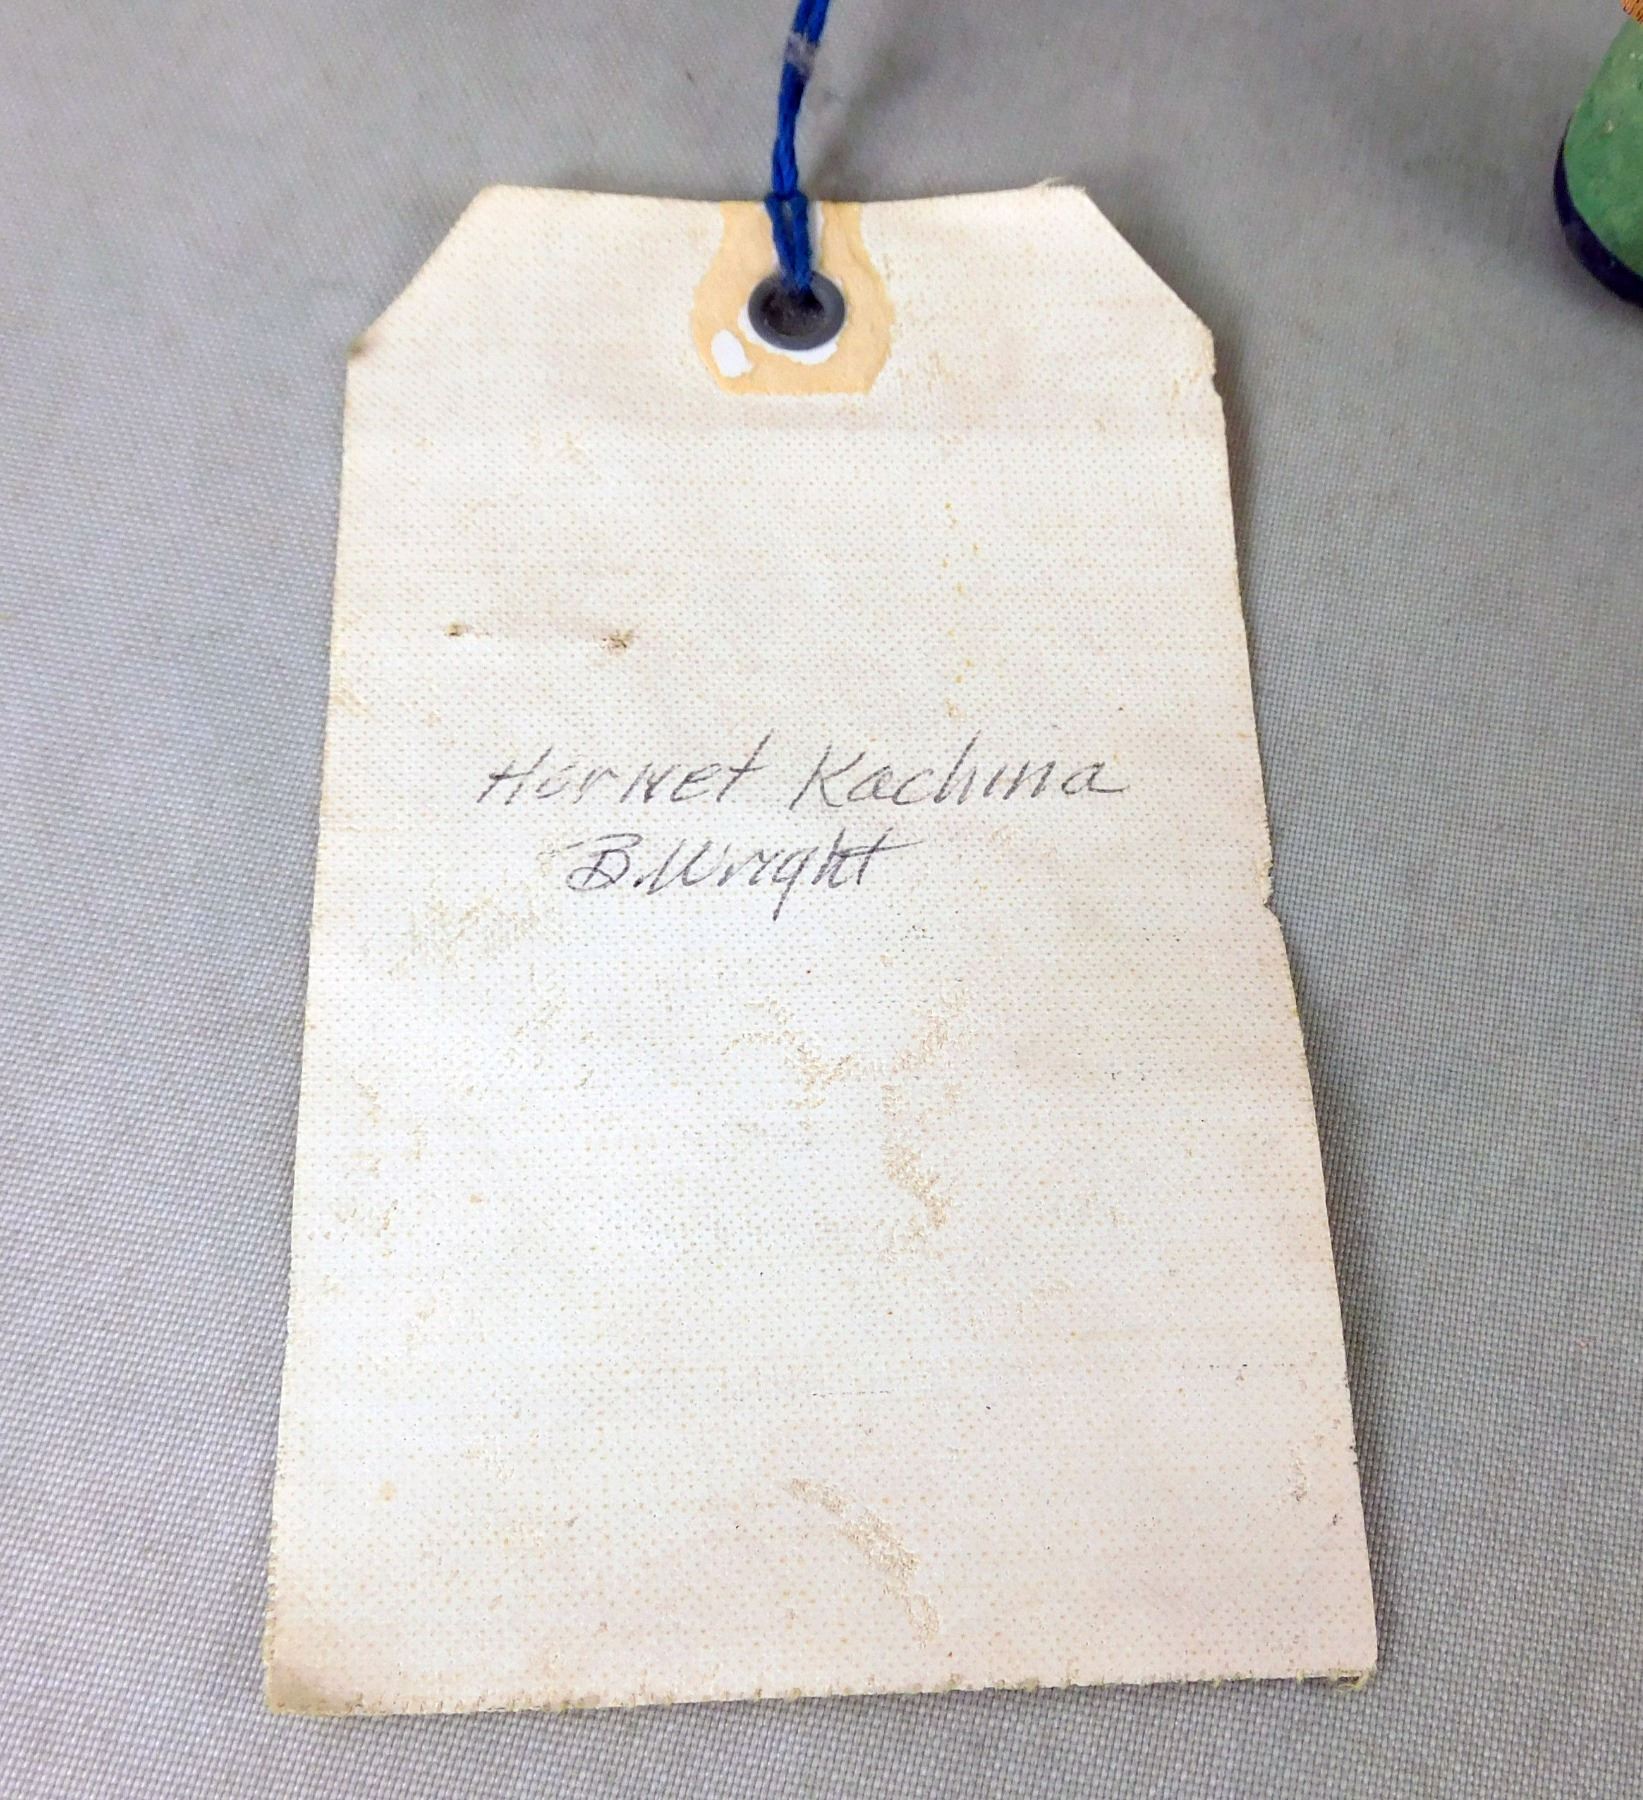 Hornet Kachina
B. Wright